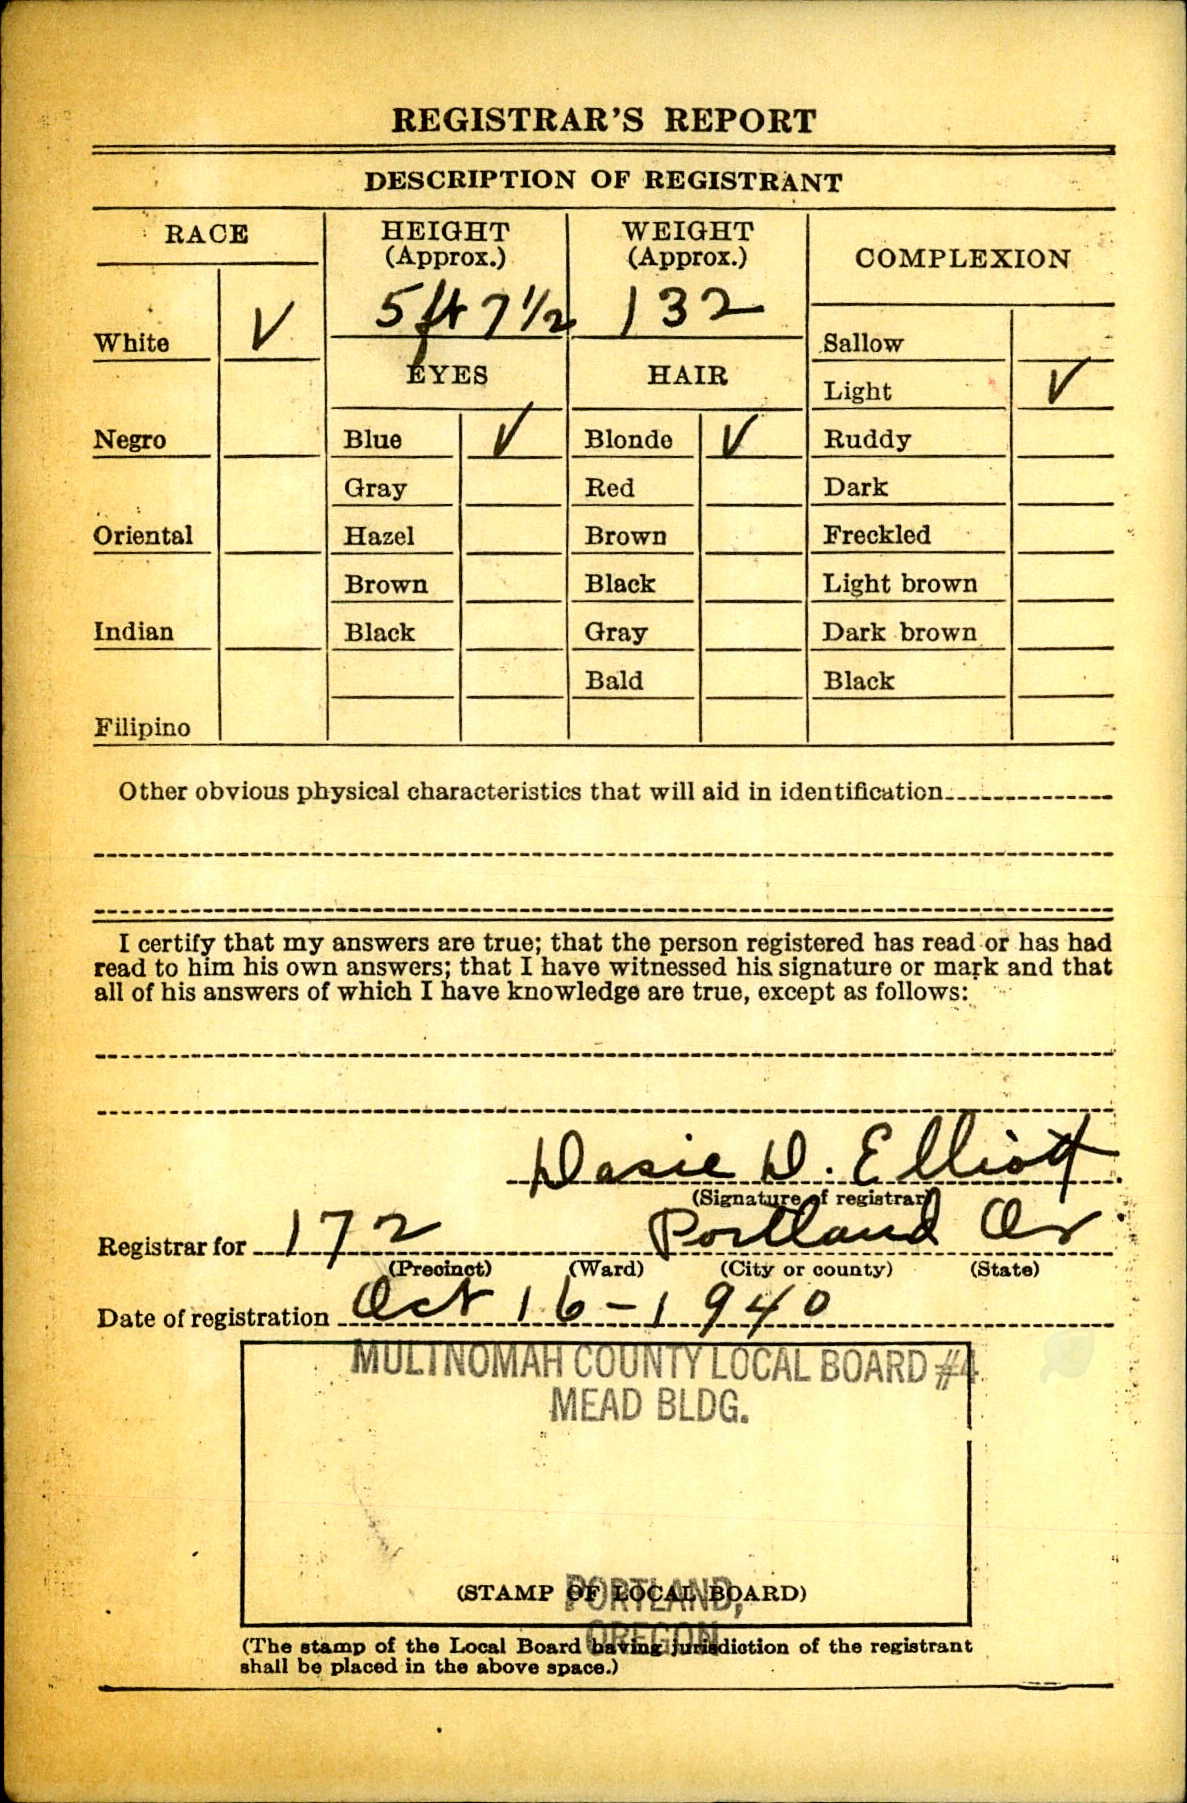 REGISTRAR'S REPORT
DESCRIPTION OF REGISTRANT
RACE
HEIGHT
(Approx.)
WEIGHT
(Approx.)
COMPLEXION
5 ft 7 1/2
132
White ✓
Sallow
EYES
HAIR
Light ✓
Negro
Blue ✓
Blonde ✓
Ruddy
Gray
Red
Dark
Oriental
Hazel
Brown
Freckled
Brown
Black
Light brown
Indian
Black
Gray
Dark brown
Bald
Black
Filipino
Other obvious physical characteristics that will aid in identification
I certify that my answers are true; that the person registered has read or has had
read to him his own answers; that I have witnessed his signature or mark and that
all of his answers of which I have knowledge are true, except as follows:
Dasie D. Elliott
(Signature of registrar)
Registrar for 172 Portland Or
(Precinct) (Ward) (City or county) (State)
Date of registration Oct 16-1940
MULTNOMAH COUNTY LOCAL BOARD #4
MEAD BLDG.
(STAMP OF LOCAL BOARD)
PORTLAND,
OREGON
(The stamp of the Local Board having jurisdiction of the registrant
shall be placed in the above space.)